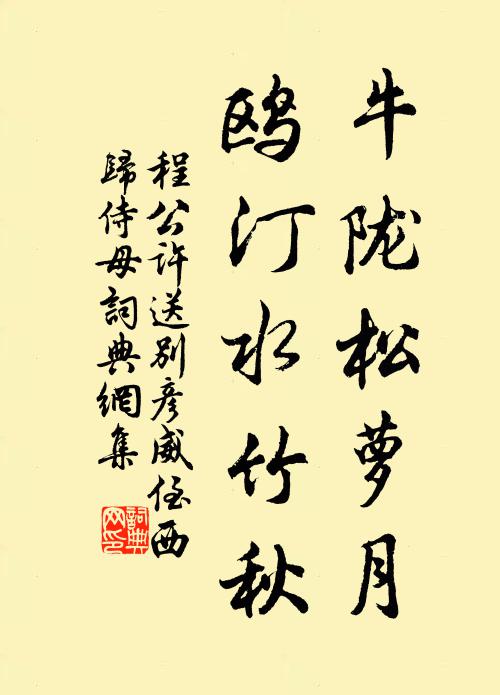 牛陇松萝月
鸥汀水竹秋
程公许送别彦威侄西
歸侍母詞典網集
詞典网印